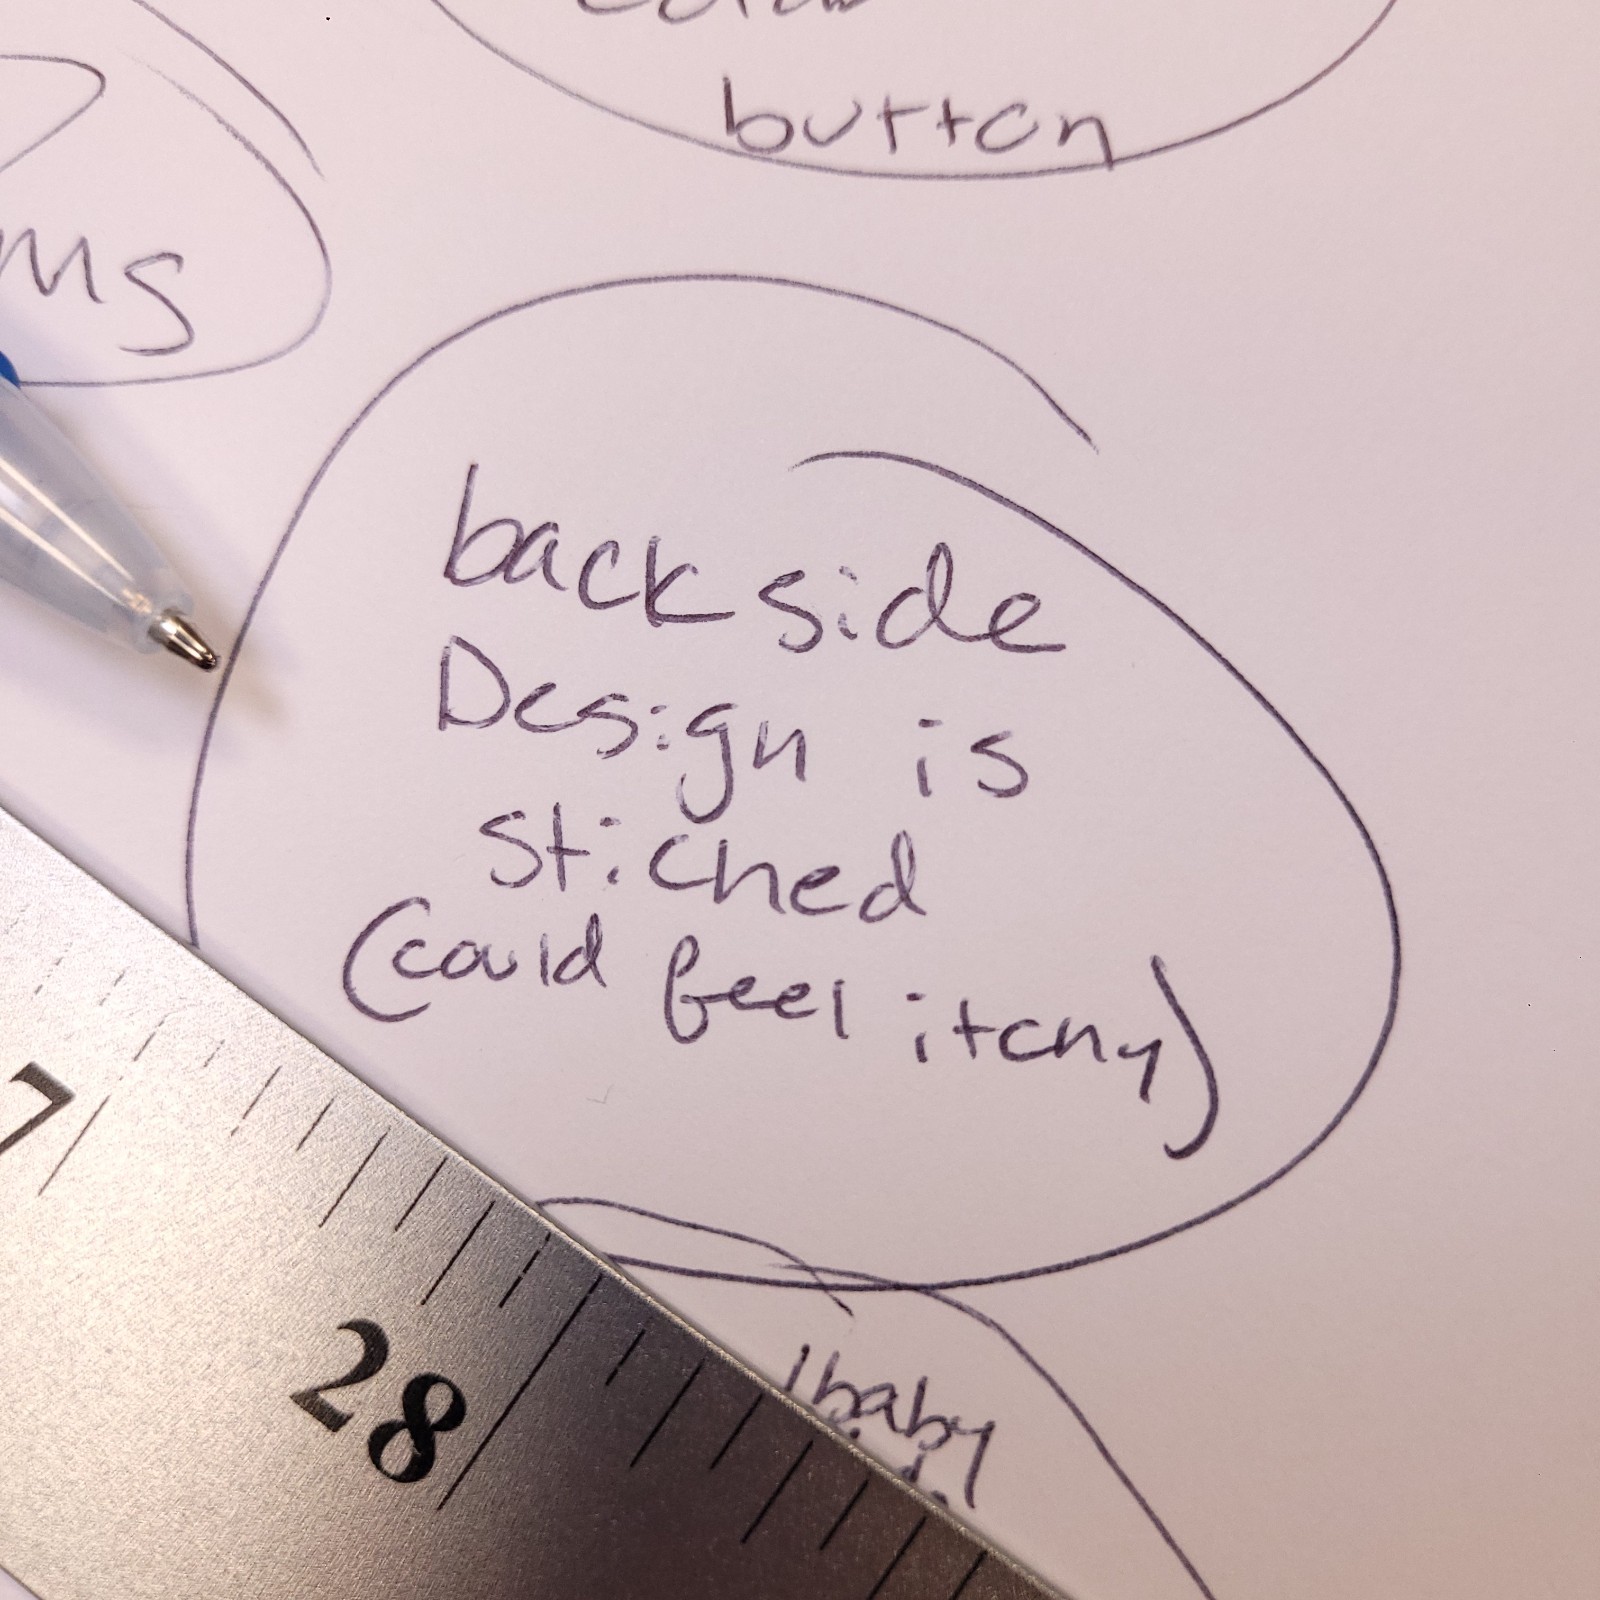 button
ms
backside
Design is
stiched
(could feel itchy)
baby
7
28